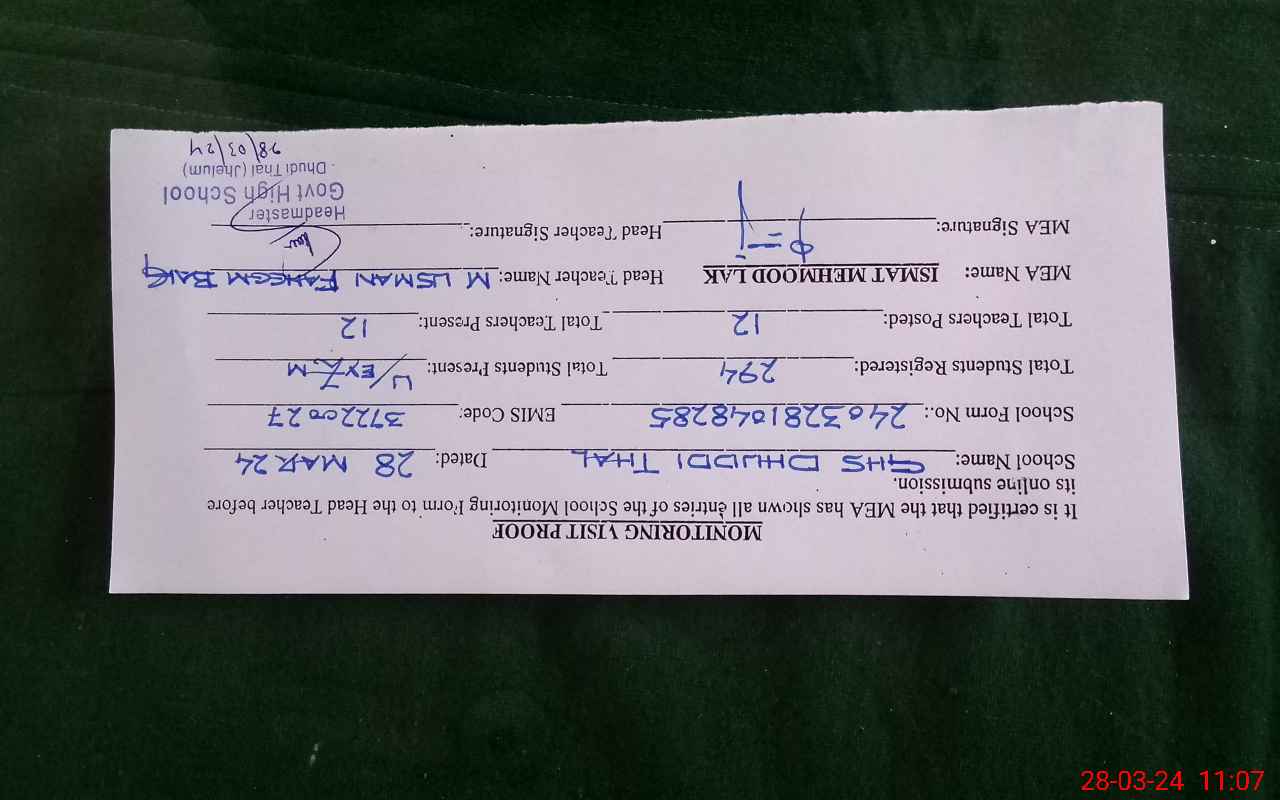 MONITORING VISIT PROOF
It is certified that the MEA has shown all entries of the School Monitoring Form to the Head Teacher before
its online submission.
School Name: GHS DHUDDI THAL Dated: 28 MAR 24
School Form No.: 2403281048285 EMIS Code: 37220027
Total Students Registered: 294 Total Students Present: U/EXZM
Total Teachers Posted: 12 Total Teachers Present: 12
MEA Name: ISMAT MEHMOOD LAK Head Teacher Name: M USMAN FAHEEM BAIG
MEA Signature: Head Teacher Signature:
Headmaster
Govt High School
Dhudi Thal (Jhelum)
28/03/24
28-03-24 11:07